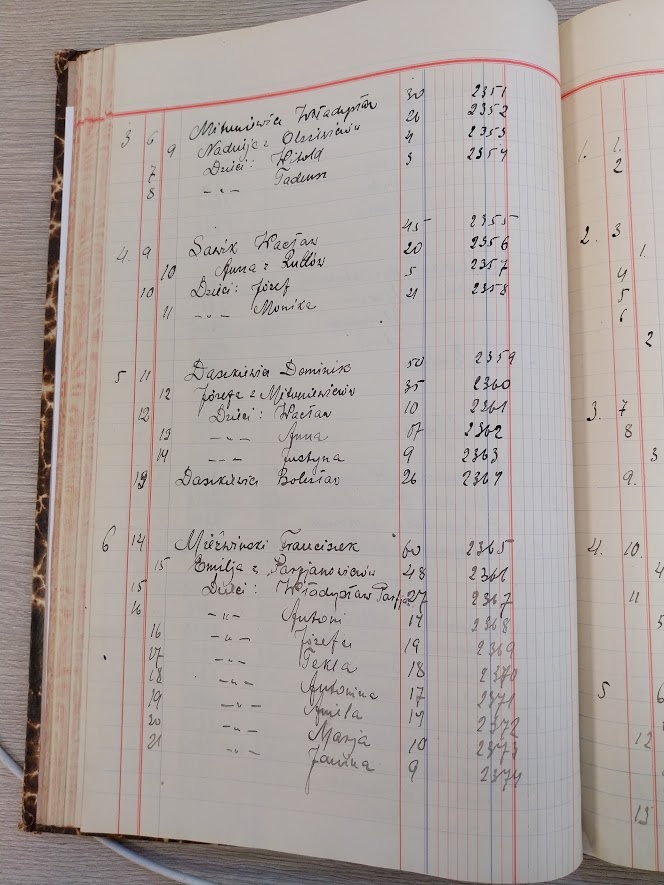 3 6 Mituniewicz Władysław 30 2351
9 Nadzieja z Olszewiczów 26 2352
7 Dzieci: Witold 4 2353
8 –„– Tadeusz 3 2354
4. 9 Sawik Wacław 45 2355
10 Anna z 20 2356
10 Dzieci: Józef 5 2357
11 –„– Monika 21 2358
5 11 Daszkiewicz Dominik 50 2359
12 Józefa z Mituniewiczów 35 2360
12 Dzieci: Wacław 10 2361
13 –„– Anna 17 2362
14 –„– Justyna 9 2363
13 Daszkiewicz Bolesław 26 2364
6 14 Mieźwinski Franciszek 60 2365
15 Emilja z Parfjanowiczów 48 2366
15 Dzieci: Władysław 27 2367
16 –„– Antoni 14 2368
16 –„– Józefa 19 2369
17 –„– Tekla 18 2370
18 –„– Antonina 17 2371
19 –„– Amila 14 2372
20 –„– Marja 10 2373
21 –„– Janina 9 2374
1. 1.
2
2. 3
1.
4
5
6
2
3. 7
8
3
9.
4. 10.
4
11
5
5 6
12
13